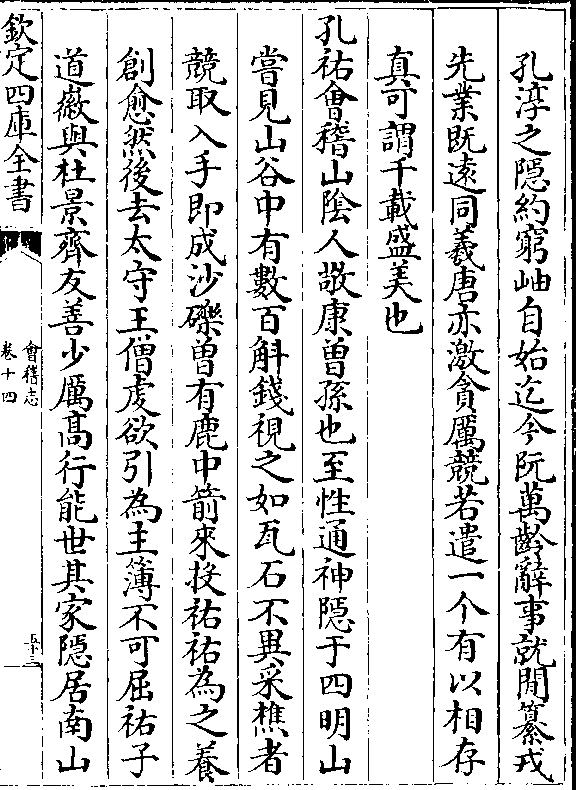 孔淳之隱約窮岫自始迄今阮萬齡辭事就閒纂戎
先業既遠同羲唐亦激貪厲競若遣一个有以相存
真可謂千載盛美也
孔祐會稽山陰人敬康曽孫也至性通神隱于四明山
嘗見山谷中有數百斛錢視之如瓦石不異采樵者
競取入手即成沙礫曽有鹿中箭來投祐祐為之養
創愈然後去太守王僧虔欲引為主簿不可屈祐子
道徽與杜景齊友善少厲髙行能世其家隱居南山
欽定四庫全書
會稽志
卷十四
五十三